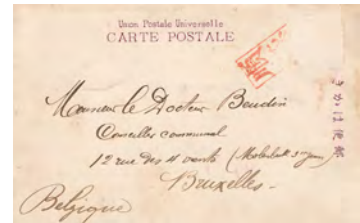 Union Postale Universelle
CARTE POSTALE
Monsieur le Docteur Beudin
Conseiller communal
12 rue des 4 vents
Bruxelles -
Belgique